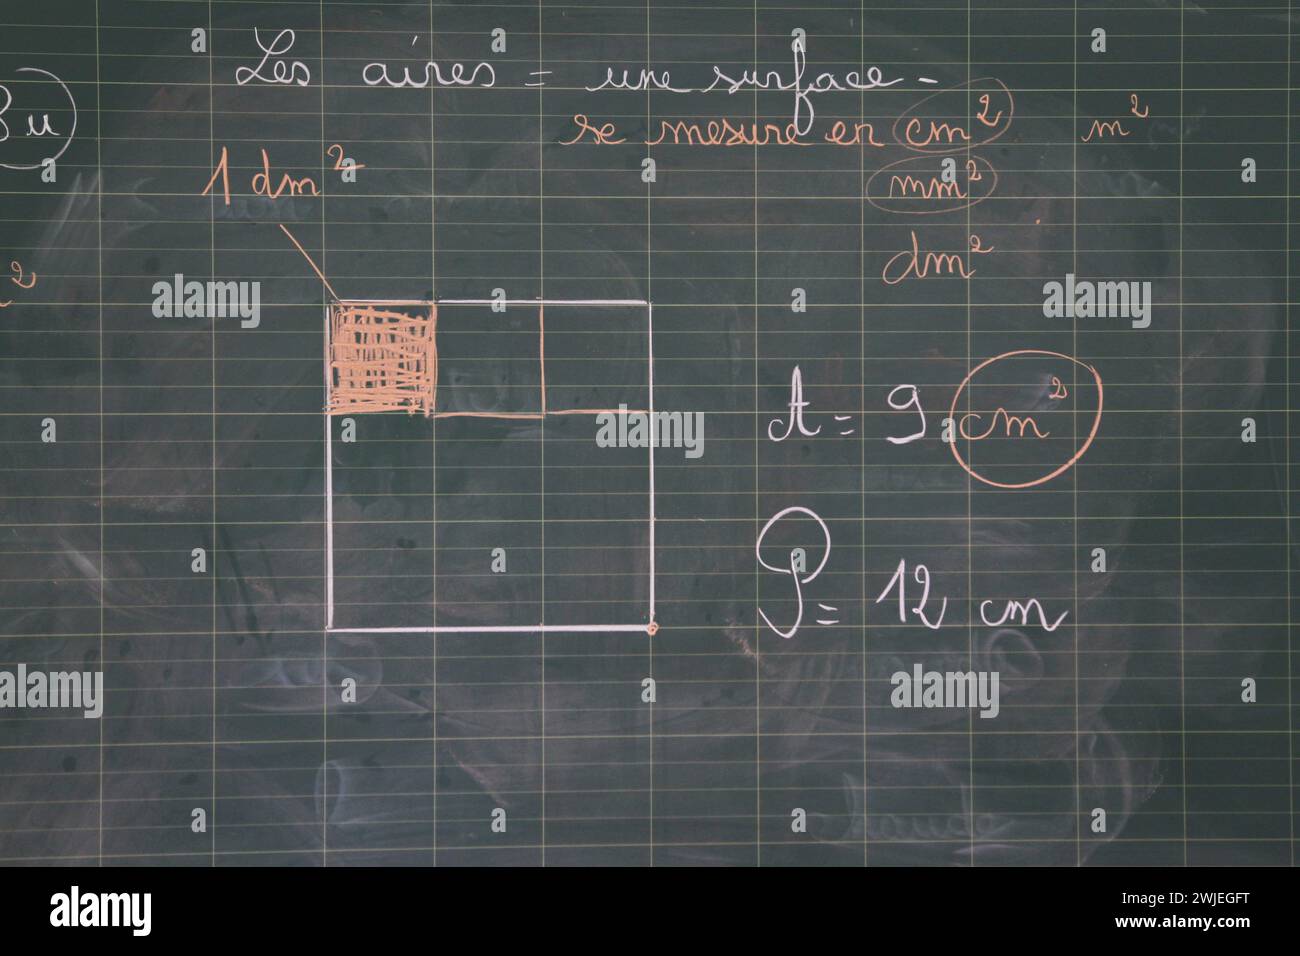 Les aires = une surface -
se mesure en cm² m²
3u
1 dm²
mm²
dm²
²
A = 9 cm²
P = 12 cm
chaude
alamy
alamy
alamy
alamy
alamy
a
alamy
Image ID: 2WJEGFT
www.alamy.com